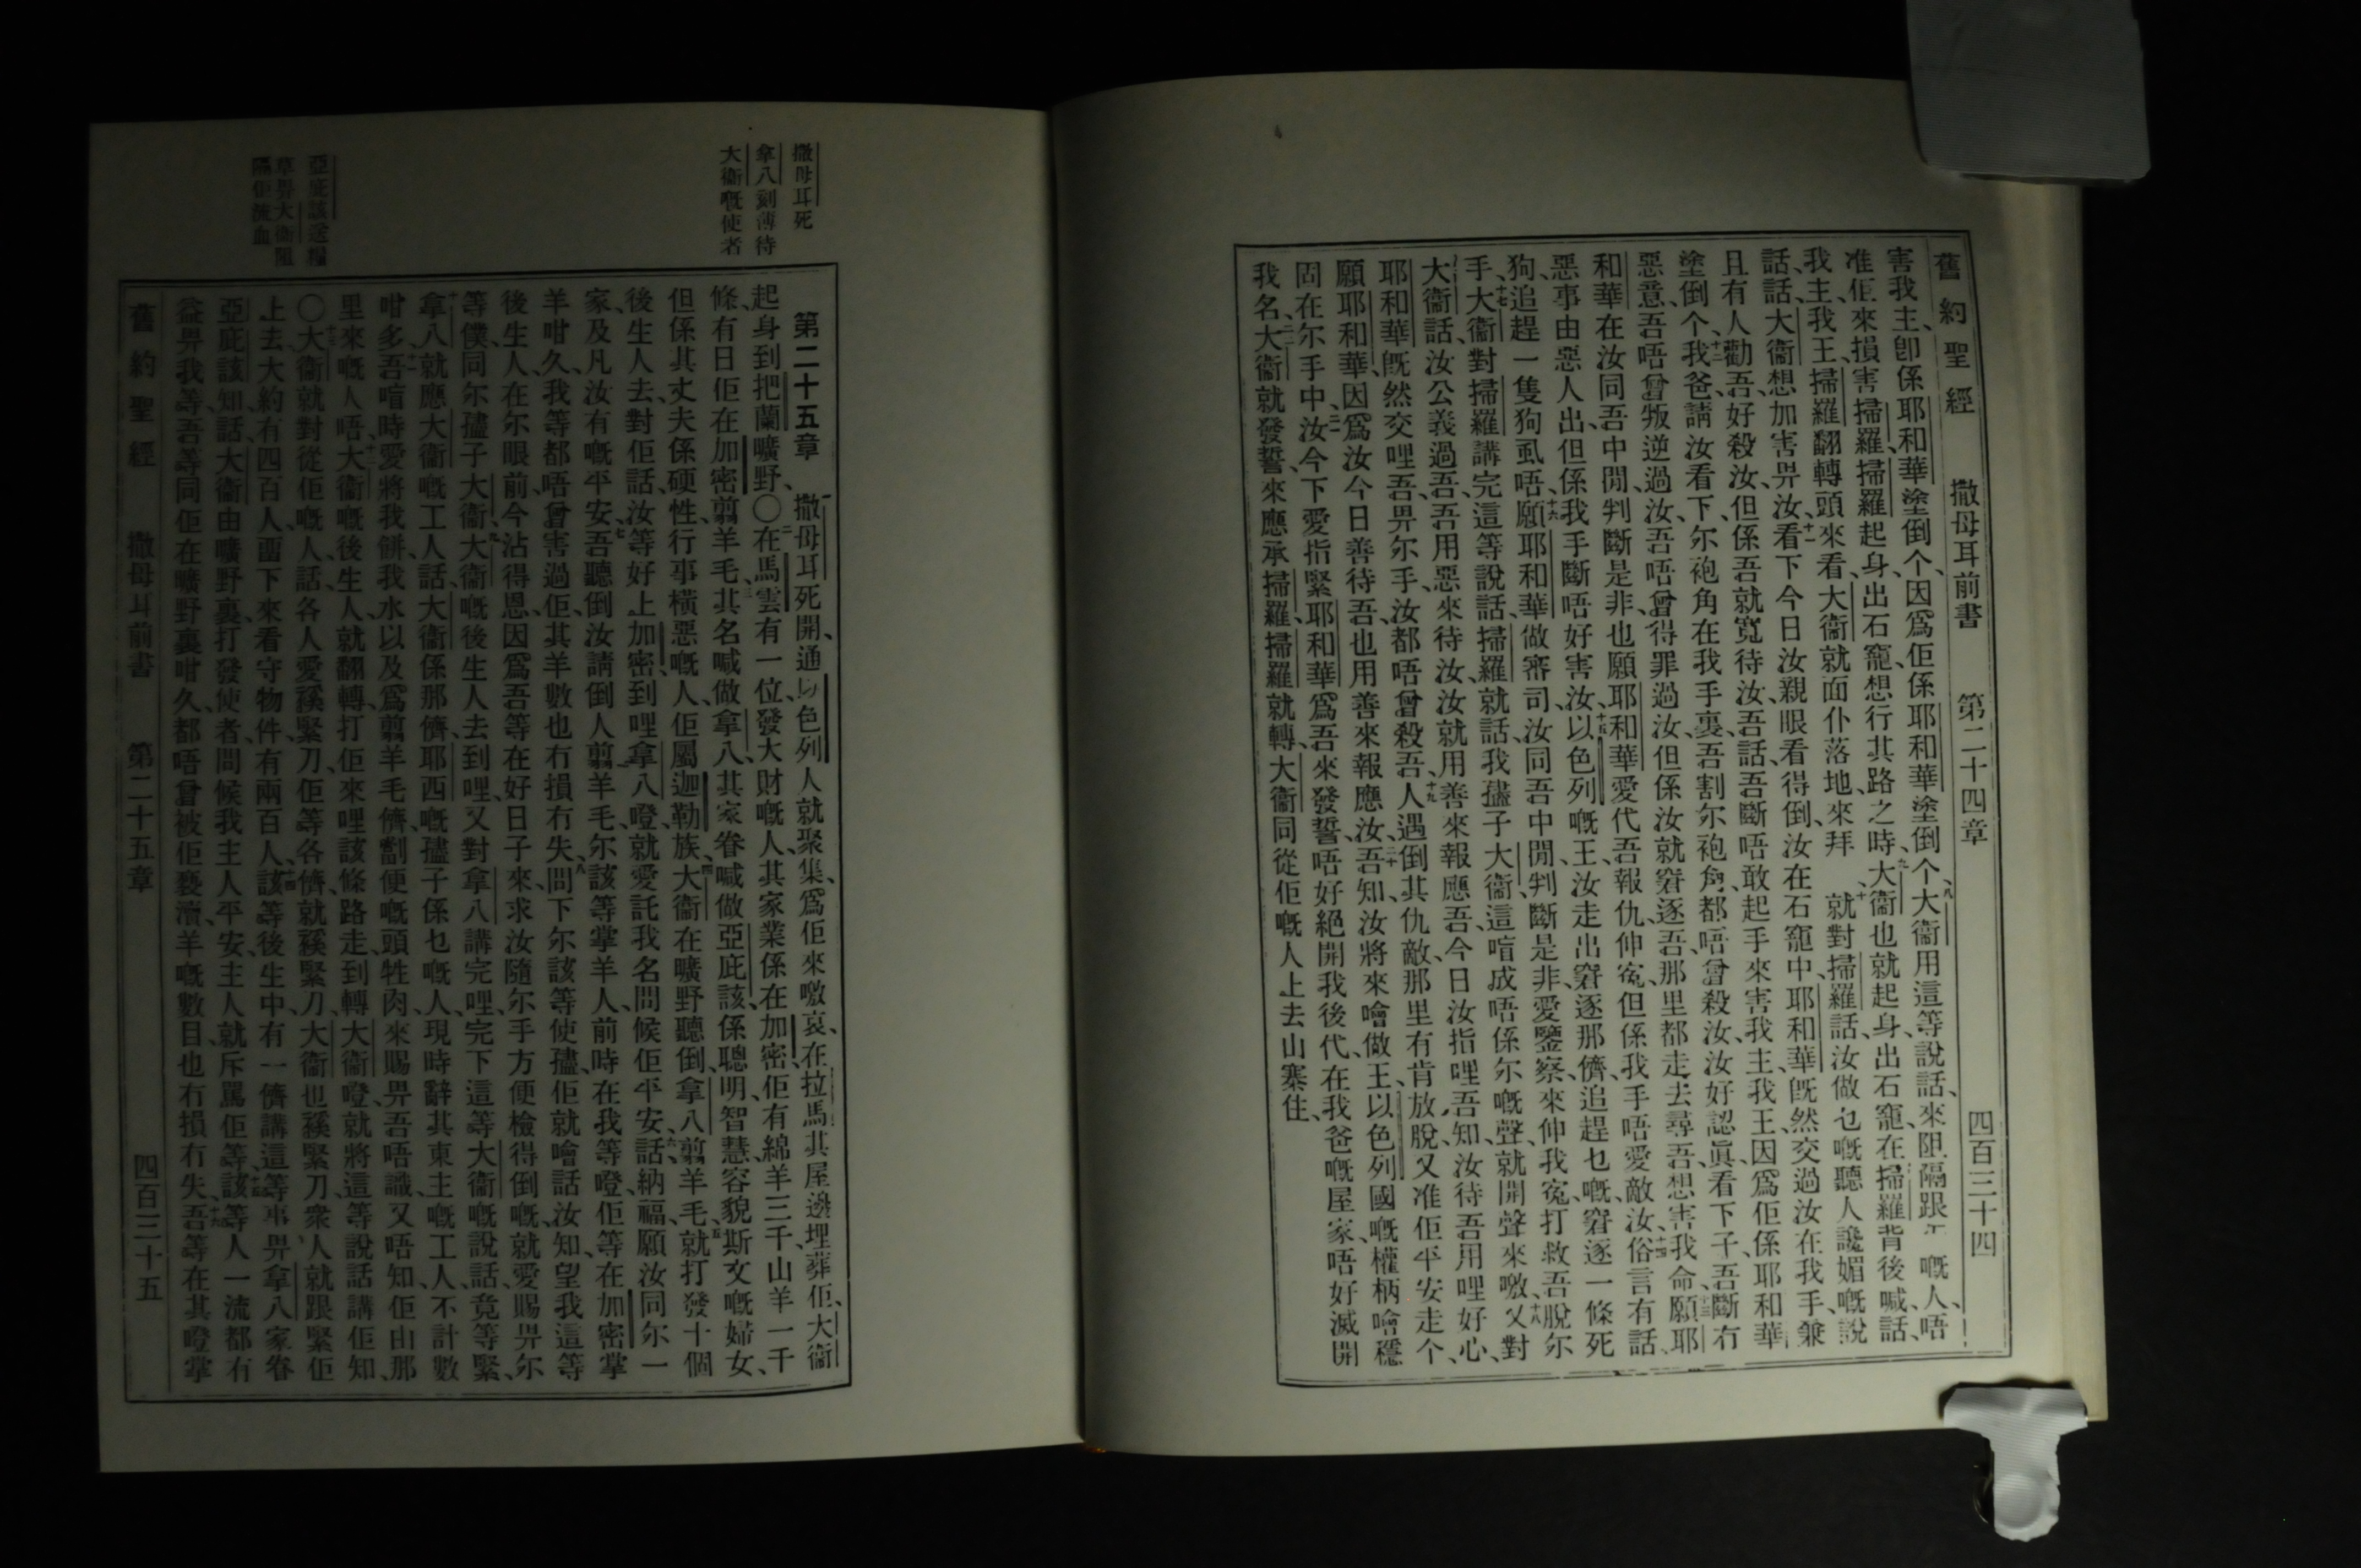 舊約聖經　撒母耳前書　第二十四章　四百三十四
害我主、卽係耶和華塗倒个、因爲佢係耶和華塗倒个、八大衞用這等說話、來阻隔跟 嘅人、唔
准佢來損害掃羅、掃羅起身、出石窿、想行其路之時、九大衞也就起身、出石窿、在掃羅背後喊、話、
我主、我王、掃羅翻轉頭來看、大衞就面仆落地、來拜 、十就對掃羅話、汝做乜嘅聽人讒媚嘅說
話、話、大衞想加害畀汝、十一看下今日汝親眼看得倒、汝在石窿中、耶和華旣然交過汝在我手、兼
且有人勸吾、好殺汝、但係吾就寬待汝、吾話、吾斷唔敢起手來害我主、我王、因爲佢係耶和華
塗倒个、十二我爸、請汝看下、尔袍角在我手裏、吾割尔袍角、都唔曾殺汝、汝好認眞看下子、吾斷冇
惡意、吾唔曾叛逆過汝、吾唔曾得罪過汝、但係汝就窘逐吾、那里都走去尋吾、想害我命、十三願耶
和華在汝同吾中間、判斷是非、也願耶和華愛代吾報仇伸寃、但係我手唔愛敵汝、十四俗言有話、
惡事由惡人出、但係我手斷唔好害汝、十五以色列嘅王、汝走出窘逐那儕、追趕乜嘅、窘逐一條死
狗、追趕一隻狗虱唔、十六願耶和華做審司、汝同吾中間、判斷是非、愛鑒察、來伸我寃、打救吾脫尔
手、十七大衞對掃羅講完這等說話、掃羅就話、我孻子大衞、這喑成唔係尔嘅聲、就開聲來噭、十八又對
大衞話、汝公義過吾、吾用惡來待汝、汝就用善來報應吾、今日汝指哩吾知、汝待吾用哩好心、
耶和華旣然交哩吾、畀尔手、汝都唔曾殺吾、十九人遇倒其仇敵、那里有肯放脫、又准佢平安走个、
願耶和華、因爲汝今日善待吾、也用善來報應汝、二十吾知汝將來噲做王、以色列國嘅權柄噲穩
固在尔手中、二一汝今下愛指緊耶和華爲吾來發誓、唔好絕開我後代、在我爸嘅屋家、唔好滅開
我名、二二大衞就發誓、來應承掃羅、掃羅就轉、大衞同從佢嘅人上去山寨住、
撒母耳死
拿八刻薄待
大衞嘅使者
亞庇該送糧
草畀大衞阻
隔佢流血
第二十五章　一撒母耳死開、通以色列人就聚集、爲佢來噭哀、在拉馬其屋邊埋葬佢、大衞
起身到把蘭曠野、〇二在馬雲有一位、發大財嘅人、其家業係在加密、佢有綿羊三千、山羊一千
條、有日佢在加密剪羊毛、三其名喊做拿八、其家眷喊做亞庇該、係聰明、智慧、容貌斯文嘅婦女、
但係其丈夫係硬性、行事橫惡嘅人、佢屬迦勒族、四大衞在曠野聽倒、拿八剪羊毛、五就打發十個
後生人去、對佢話、汝等好上加密、到哩拿八噔、就愛託我名問候佢平安、六話、納福、願汝同尔一
家、及凡汝有嘅平安、七吾聽倒汝請倒人剪羊毛、尔該等掌羊人、前時在我等噔、佢等在加密掌
羊咁久、我等都唔曾害過佢、其羊數也冇損冇失、八問下尔該等使孻、佢就噲話汝知、望我這等
後生人、在尔眼前、今沾得恩、因爲吾等在好日子來、求汝隨尔手方便檢得倒嘅、就愛賜畀尔
等僕、同尔孻子大衞、九大衞嘅後生人去到哩、又對拿八講完哩、完下這等大衞嘅說話、竟等緊、
十拿八就應大衞嘅工人話、大衞係那儕、耶西嘅孻子係乜嘅人、現時辭其東主嘅工人、不計數
咁多、十一吾喑時愛將我餠、我水、以及爲剪羊毛儕劏便嘅頭牲肉、來賜畀吾唔識、又唔知佢由那
里來嘅人唔、十二大衞嘅後生人、就翻轉、打佢來哩該條路走、到轉大衞噔、就將這等說話講佢知、
〇十三大衞就對從佢嘅人話、各人愛䌸緊刀、佢等各儕、就䌸緊刀、大衞也䌸緊刀、衆人就跟緊佢
上去、大約有四百人、畱下來看守物件、有兩百人、十四該等後生中、有一儕講這等事、畀拿八家眷
亞庇該知、話、大衞由曠野裏、打發使者、問候我主人平安、主人就斥罵佢等、十五該等人一流都有
益畀我等、吾等同佢在曠野裏咁久、都唔曾被佢褻瀆、羊嘅數目也冇損冇失、十六吾等在其噔掌
舊約聖經　撒母耳前書　第二十五章　四百三十五